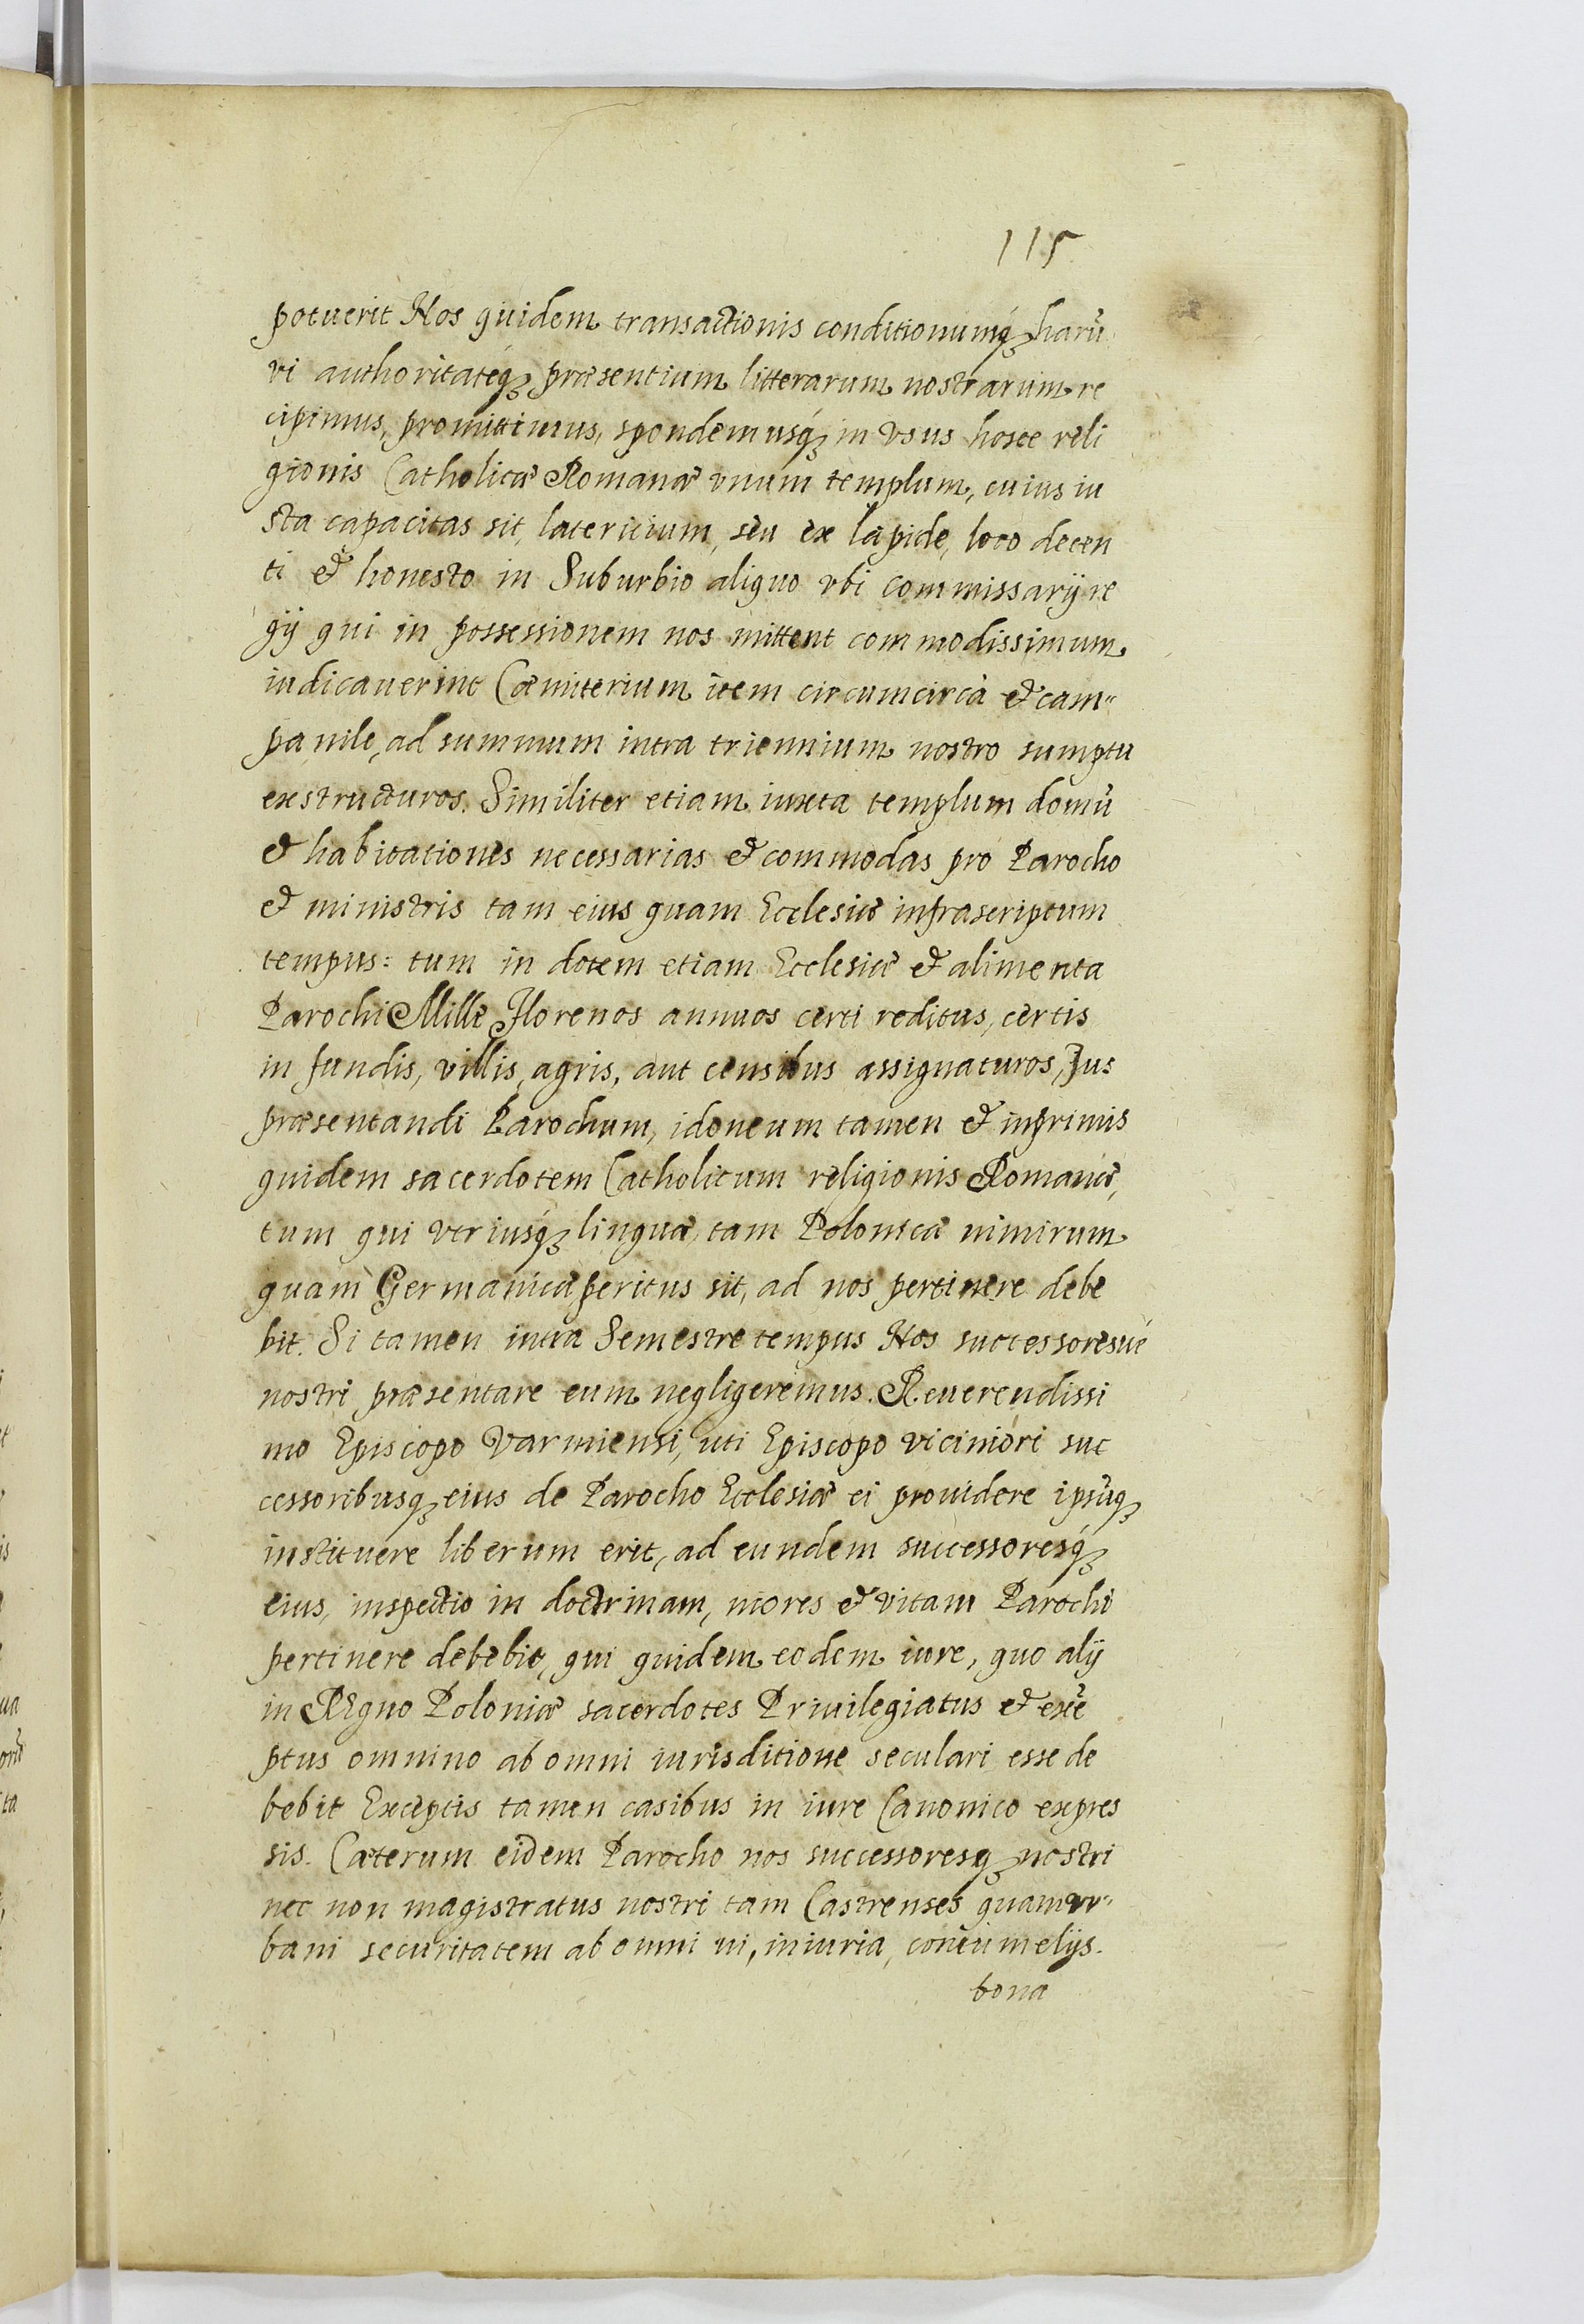 115
potuerit Nos quidem transactionis conditionumq₃ harũ
vi authoritateq₃ præsentium litterarum nostrarum re
cipimus, promittimus, spondemusq́₃ in vsus hosce reli
gionis Catholicæ Romanæ vnum templum, cuius iu
sta capacitas sit, latericium, seu ex lapide, loco decen
ti & honesto in Suburbio aliquo vbi commissarij re
gij qui in possessionem nos mittent commodissimum
iudicauerint Cæmiterium item circumcircà & cam"
panile, ad summum intra triennium nostro sumptu
exstructuros. Similiter etiam iuxta templum domũ
& habitationes necessarias & commodas pro Parocho
& ministris tam eius quam Ecclesiæ infrascriptum
tempus: tum in dotem etiam Ecclesiæ & alimenta
Parochi Mille Florenos annuos certi reditus, certis
in fundis, villis, agris, aut censibus assignaturos, Jus
præsentandi Parochum, idoneum tamen & inprimis
quidem sacerdotem Catholicum religionis Romanæ,
tum qui vtriusq́₃ linguæ, tam Polonicæ nimirum
quam Germanicæ peritus sit, ad nos pertinere debe
bit. Si tamen intra Semestre tempus Nos successoresué
nostri præsentare eum negligeremus. Reuerendissi
mo Episcopo Varmiensi, uti Episcopo viciniori suc
cessoribusq₃ eius de Parocho Ecclesiæ ei prouidere ipsũq₃
instituere liberum erit, ad eundem successoresq́₃
eius, inspectio in doctrinam, mores & vitam Parochi
pertinere debebit, qui quidem eodem iure, quo alij
in REgno Poloniæ sacerdotes Priuilegiatus & exẽ
ptus omnino ab omni iurisditione seculari esse de
bebit Exceptis tamen casibus in iure Canonico expres
sis. Cæterum eidem Parocho nos successoresq₃ nostri
nec non magistratus nostri tam Castrenses quam vr"
bani securitatem ab omni ui, iniuria, contumelijs.
bona